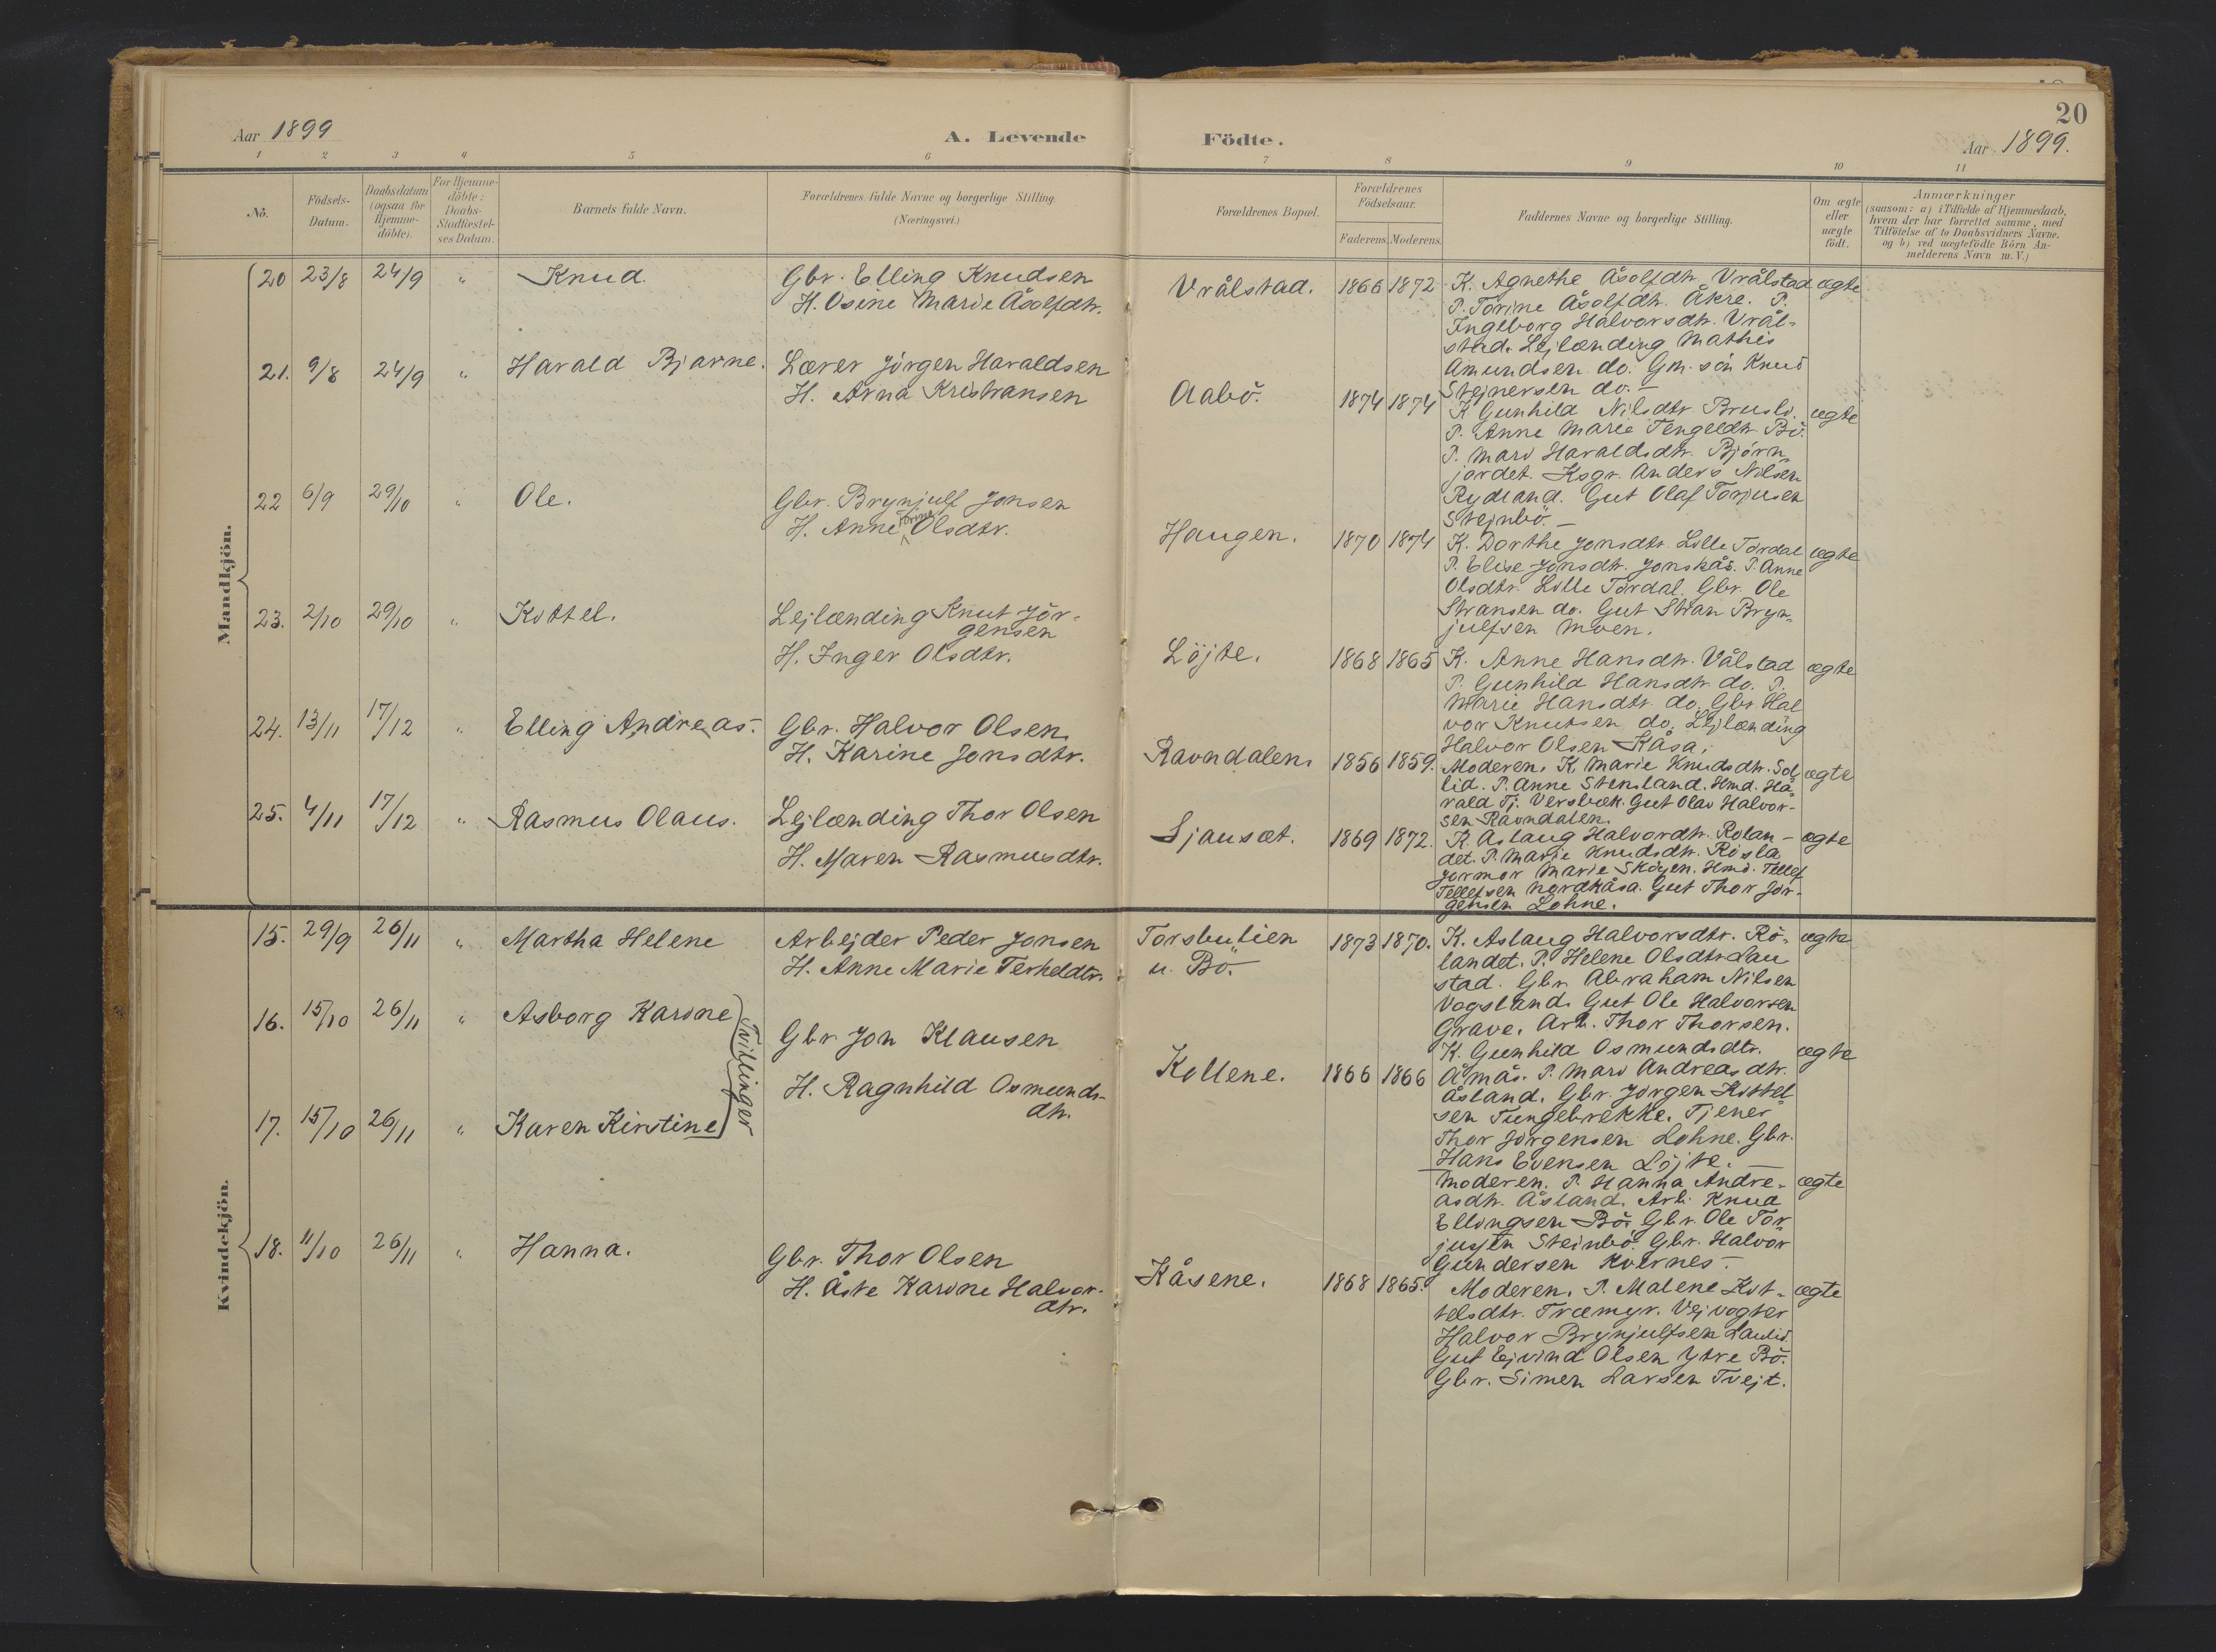 20
Aar 1899
A. Levende Födte.
Aar 1899.
1 2 3 4 5 6 7 8 9 10 11
Nö.
Födsels-
Datum.
Daabsdatum
(ogsaa for
Hjemme-
döbte).
For Hjemme-
döbte:
Daabs-
Stadfæstel-
ses Datum.
Barnets fulde Navn.
Forældrenes fulde Navne og borgerlige Stilling.
(Næringsvei.)
Forældrenes Bopæl.
Forældrenes
Födselsaar.
Faderens. Moderens.
Faddernes Navne og borgerlige Stilling.
Om ægte
eller
uægte
födt.
Anmærkninger
(saasom: a) i Tilfælde af Hjemmedaab,
hvem der har forrettet samme, med
Tilföielse af to Daabsvidners Navne,
og b) ved uægtefödte Börn An-
melderens Navn m. V.)
Mandkjön.
20 23/8 24/9 " Knud.
Gbr. Elling Knudsen
H. Osine Marie Åsolfdtr.
Vrålstad. 1866 1872
K. Agnethe Åsolfdtr. Vrålstad ægte
P. Torine Åsolfdtr. Åkre. P.
Ingeborg Halvorsdtr. Vrål-
stad. Lejlænding Mathis
Amundsen do. Gm. sön Knud
Stejnersen do. —
21. 9/8 24/9 " Harald Bjarne.
Lærer Jörgen Haraldsen
H. Anna Kristiansen
Aabö. 1874 1874
K. Gunhild Nilsdtr. Brusli. ægte
P. Anne Marie Tengeldtr. Bö.
P. Mari Haraldsdtr. Bjørn-
jordet. Ksgr. Anders Nilsen
Rydland. Gut Olaf Torjusen
Stejnbö. —
22 6/9 29/10 " Ole.
Gbr. Brynjulf Jonsen
H. Anne Torine Olsdtr.
Haugen. 1870 1874
K. Dorthe Jonsdtr. Lille Tördal ægte
P. Elise Jonsdtr. Jonskås. P. Anne
Olsdtr. Lille Tördal. Gbr. Ole
Stiansen do. Gut Stian Bryn-
julfsen Moen.
23. 2/10 29/10 " Kittel.
Lejlænding Knut Jör-
gensen
H. Inger Olsdtr.
Löjte. 1868 1865
K. Anne Hansdtr. Vålstad ægte
P. Gunhild Hansdtr. do. P.
Marie Hansdtr. do. Gbr. Hal
vor Knutsen do. Lejlænding
Halvor Olsen Kåsa.
24. 13/11 17/12 " Elling Andreas.
Gbr. Halvor Olsen
H. Karine Jonsdtr.
Ravndalen. 1856 1859.
Moderen. K. Marie Knudsdtr. Sol ægte
lid. P. Anne Stensland. Hmd. Ha-
rald Tj. Versbæk. Gut Olav Halvor-
sen Ravndalen.
25. 4/11 17/12 " Rasmus Olaus.
Lejlænding Thor Olsen
H. Maren Rasmusdtr.
Sjausæt. 1869 1872.
K. Aslaug Halvordtr. Rolan- ægte
det. P. Marie Knudsdtr. Röslå
Jormor Marie Sköyen. Hmd. Tellef
Tellefsen Nordkåsa. Gut Thor Jör-
gensen Lohne.
Kvindekjön.
15. 29/9 26/11 " Martha Helene
Arbejder Peder Jonsen
H. Anne Marie Terkeldtr.
Torsbulien
u. Bö.
1873 1870.
K. Aslaug Halvorsdtr. Rö- ægte
landet. P. Helene Olsdtr. Lau
stad. Gbr. Abraham Nilsen
Vogsland. Gut Ole Halvorsen
Grave. Arb. Thor Thorsen.
16. 15/10 26/11 " Asborg Karine
Tvillinger
Gbr Jon Klausen
H. Ragnhild Osmunds-
dtr.
Kollene. 1866 1866
K. Gunhild Osmundsdtr. ægte
Åmås. P. Mari Andreasdtr.
Åsland. Gbr. Jörgen Kittel-
sen Tungebrekke. Tjener
Thor Jörgensen Lohne. Gbr.
Hans Evensen Löjte. —
17. 15/10 26/11 " Karen Kirstine
Moderen. P. Hanna Andre- ægte
asdtr. Åsland. Arb. Knud
Ellingsen Bö. Gbr. Ole Tor-
jusen Steinbö. Gbr. Halvor
Gundersen Kvernes. —
18. 11/10 26/11 " Hanna.
Gbr. Thor Olsen
H. Åste Karine Halvor-
dtr.
Kåsene. 1868 1865.
Moderen. P. Malene Kit- ægte
telsdtr. Træmyr. Vejvogter
Halvor Brynjulfsen Laulid.
Gut Ejvind Olsen Ytre Bö.
Gbr. Simen Larsen Tvejt.